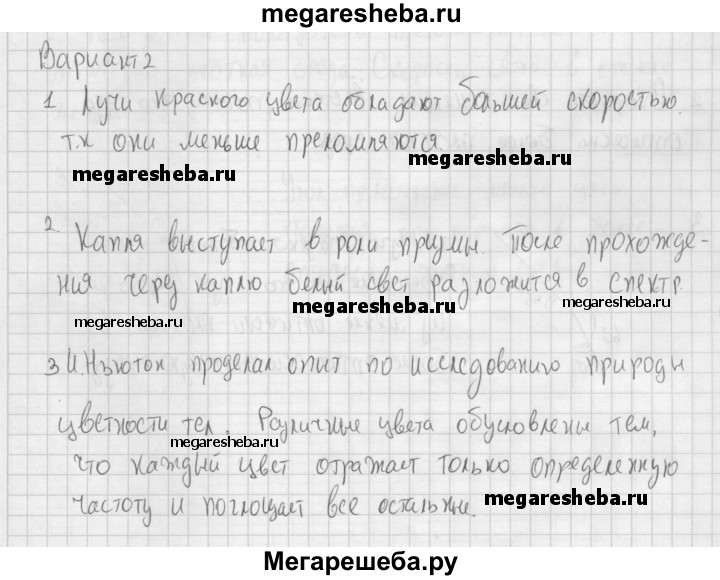 megaresheba.ru
Вариант 2
1 Лучи красного цвета обладают большей скоростью.
т.к они меньше преломляются.
megaresheba.ru
megaresheba.ru
2. Капля выступает в роли призмы. После прохожде-
ния через каплю белый свет разложится в спектр.
megaresheba.ru
megaresheba.ru
megaresheba.ru
3 И.Ньютон проделал опит по исследованию природы
цветности тел. Различные цвета обусловлены тем,
megaresheba.ru
что каждый цвет отражает только определенную
частоту и поглощает все остальные.
megaresheba.ru
Мегарешеба.ру